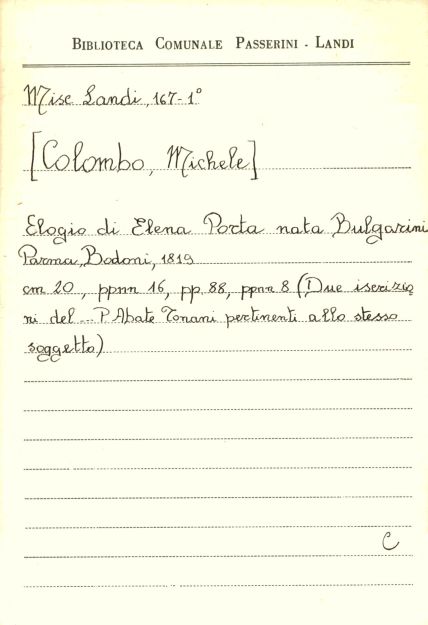 BIBLIOTECA COMUNALE PASSERINI - LANDI
Misc Landi, 167-1°
[Colombo, Michele]
Elogio di Elena Porta nata Bulgarini
Parma, Bodoni, 1819
cm 20, ppnn 16, pp. 88, ppnn 8 (Due iscrizio
ni del ... P. Abate Tonani pertinenti allo stesso
soggetto)
C